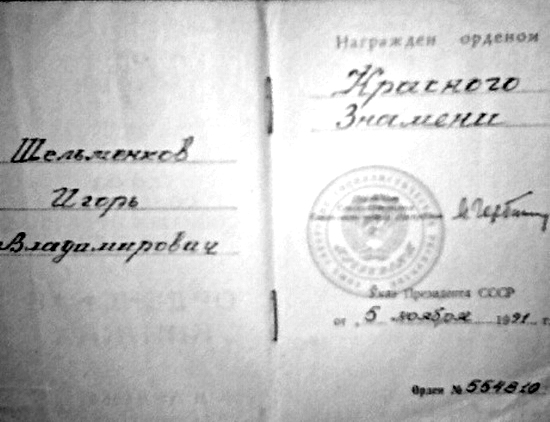 Шельменков
Игорь
Владимирович
Награжден орденом
Красного
Знамени
Указ Президента СССР
от „5 ноября 1991 г.
Орден № 554810